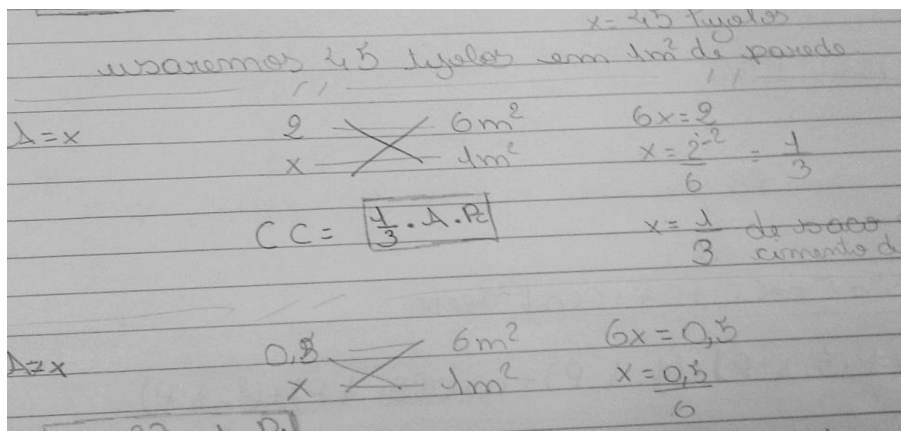 x = 45 tijolos
usaremos 45 tijolos em 1m² de parede
A = x 2 6m² 6x = 2
x 1m² x = 2÷2 / 6 = 1/3
CC = 1/3 . A . Pc x = 1/3 de saco
cimento d
A = x 0,5 6m² 6x = 0,5
x 1m² x = 0,5/6